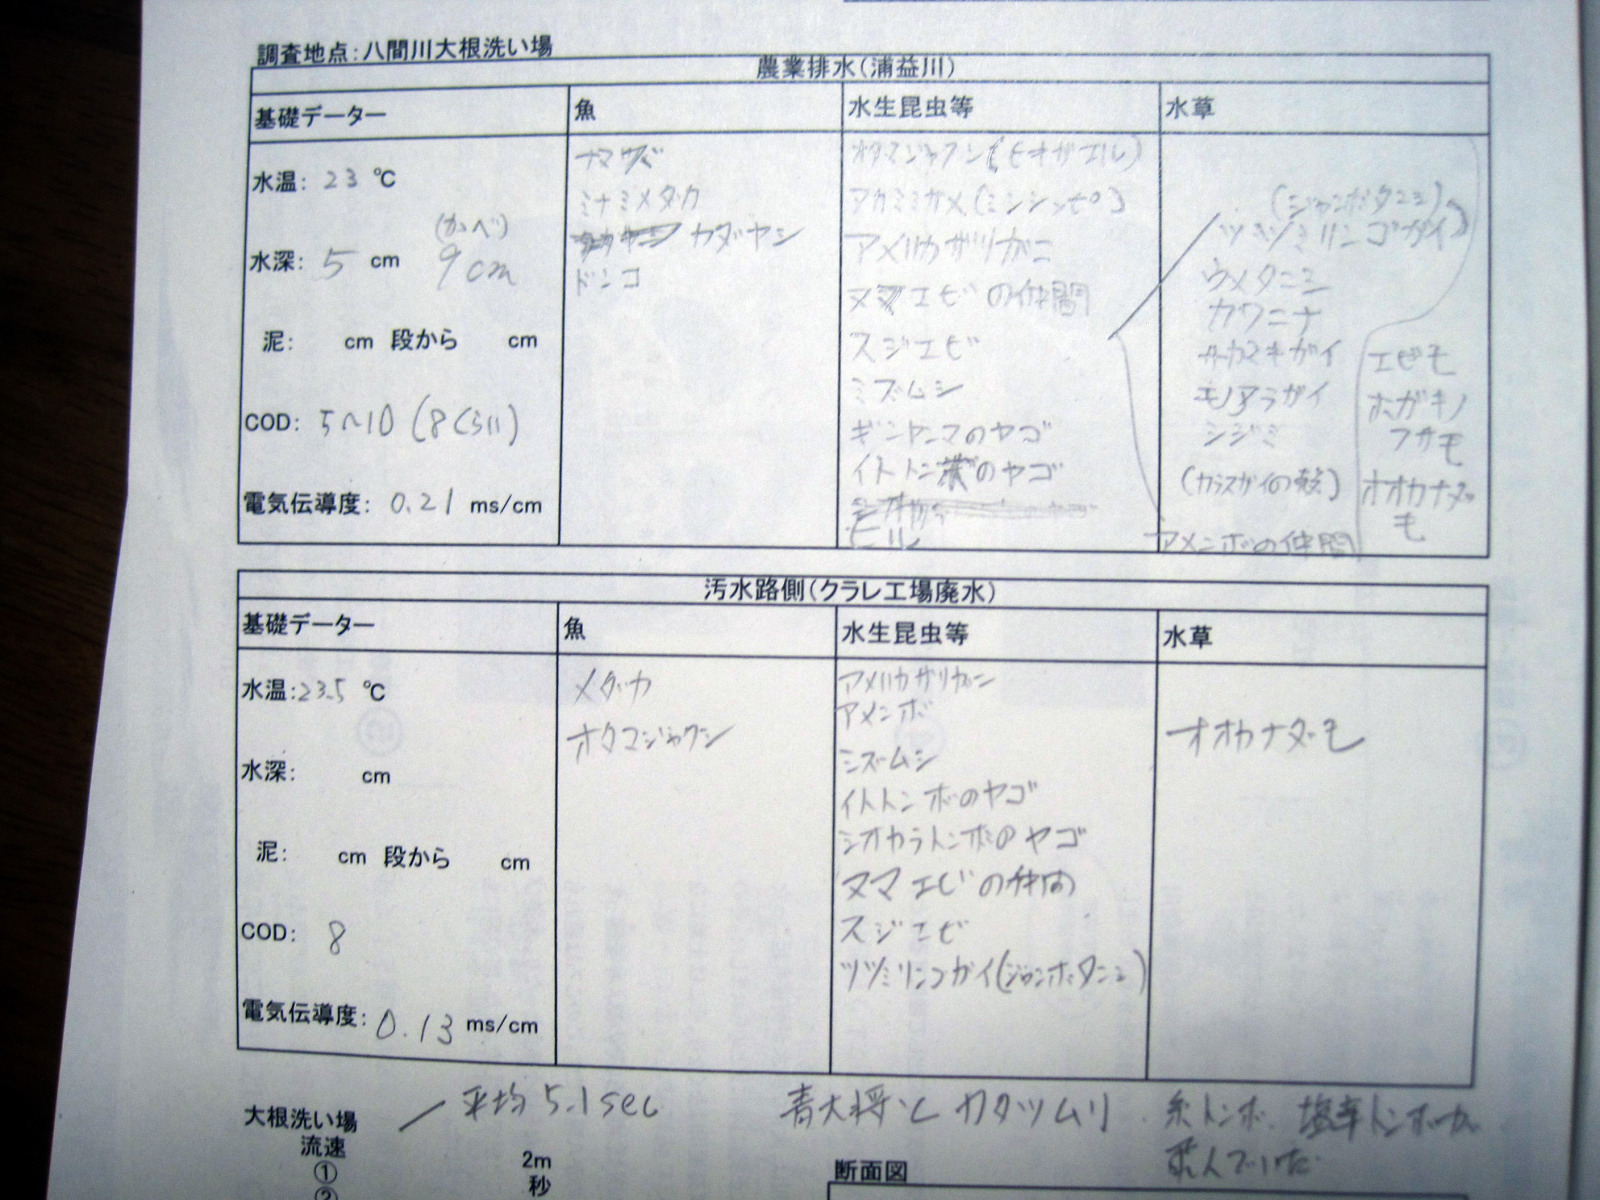 調査地点:八間川大根洗い場
農業排水(浦益川)
基礎データー 魚 水生昆虫等 水草
水温: 23 ℃
(かべ)
水深: 5 cm 9cm
泥: cm 段から cm
COD: 5〜10 (8くらい)
電気伝導度: 0.21 ms/cm
ナマズ
ミナミメダカ
カダヤシ
ドンコ
オタマジャクシ(ヒキガエル)
アカミミガメ(ミシシッピ)
アメリカザリガニ
ヌマエビの仲間
スジエビ
ミズムシ
ギンヤンマのヤゴ
イトトンボのヤゴ
ヒル
(ジャンボタニシ)
スクミリンゴガイ
ウメタニシ
カワニナ
サカマキガイ
モノアラガイ
シジミ
(カラスガイの殻)
アメンボの仲間
エビモ
ホザキノ
フサモ
オオカナダ
モ
汚水路側(クラレ工場廃水)
基礎データー 魚 水生昆虫等 水草
水温:23.5 ℃
水深: cm
泥: cm 段から cm
COD: 8
電気伝導度: 0.13 ms/cm
メダカ
オタマジャクシ
アメリカザリガニ
アメンボ
ミズムシ
イトトンボのヤゴ
シオカラトンボのヤゴ
ヌマエビの仲間
スジエビ
ツツミリンゴガイ(ジャンボタニシ)
オオカナダモ
平均 5.1sec
青大将、とカタツムリ、糸トンボ、塩辛トンボが
飛んでいた
大根洗い場
流速
① 2m
② 秒
断面図